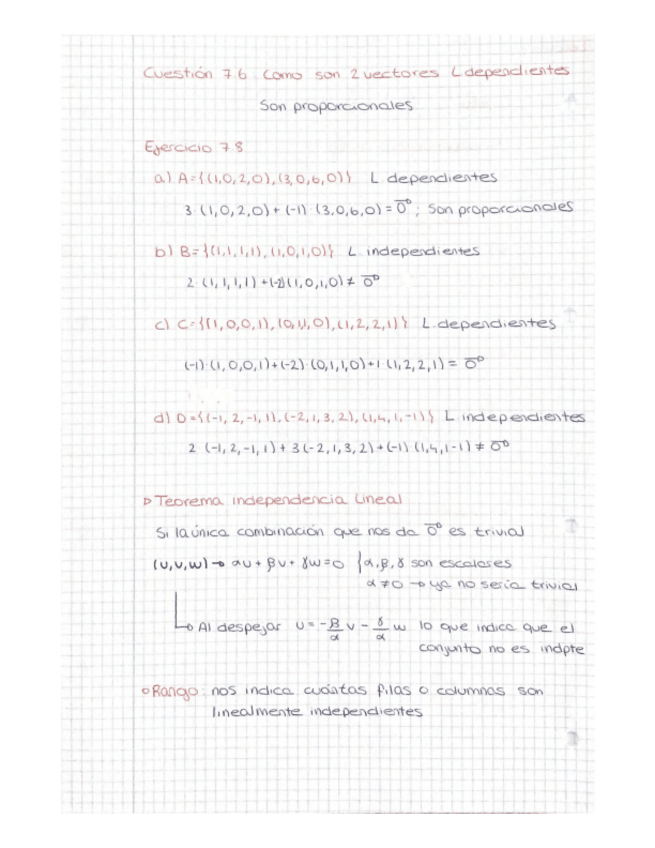 Cuestión 7.6 Como son 2 vectores L dependientes
Son proporcionales
Ejercicio 7.8
a) A={(1,0,2,0),(3,0,6,0)} L dependientes
3·(1,0,2,0)+(-1)·(3,0,6,0)=0⃗; Son proporcionales
b) B={(1,1,1,1),(1,0,1,0)} L independientes
2·(1,1,1,1)+(-2)(1,0,1,0)≠0⃗
c) C={(1,0,0,1),(0,1,1,0),(1,2,2,1)} L.dependientes
(-1)·(1,0,0,1)+(-2)·(0,1,1,0)+1·(1,2,2,1)=0⃗
d) D={(-1,2,-1,1),(-2,1,3,2),(1,4,1,-1)} L independientes
2 (-1,2,-1,1)+3(-2,1,3,2)+(-1) (1,4,1-1)≠0⃗
▷ Teorema independencia Lineal
Si la única combinación que nos da 0⃗ es trivial
(u,v,w)→ αu+βv+γw=0 {α,β,γ son escalares
α≠0 → ya no sería trivial
Al despejar u=-β/α v - γ/α w lo que indica que el
conjunto no es indpte
Rango: nos indica cuántas filas o columnas son
linealmente independientes